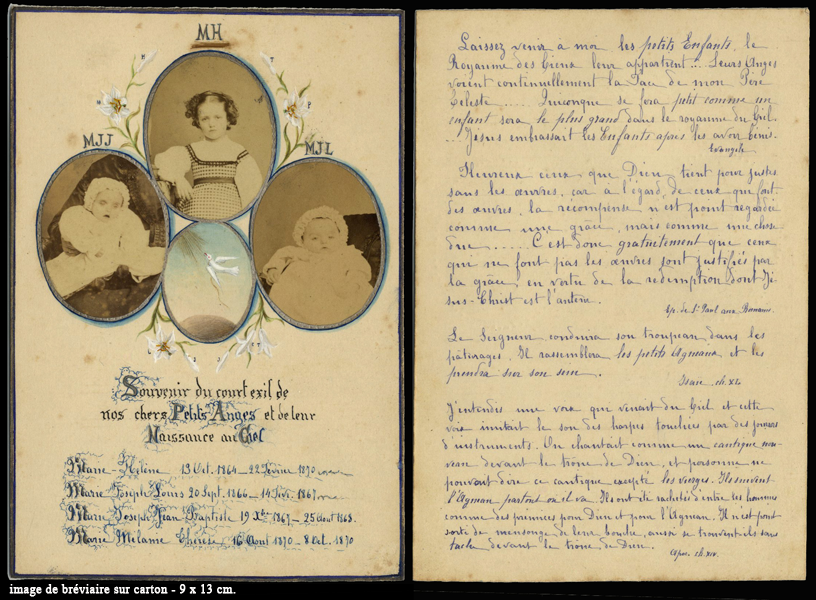 MH
MJJ
MJL
Souvenir du court exil de
nos chers Petits Anges et de leur
Naissance au Ciel
Marie-Hélène 13 Oct. 1864 — 22 Février 1870
Marie Joseph Louis 20 Sept. 1866 — 14 Févr. 1867
Marie Joseph Jean Baptiste 19 Xbre 1867 — 25 Aout 1868.
Marie Mélanie Thérèse 16 Aout 1870 — 8 Oct. 1870
image de bréviaire sur carton - 9 x 13 cm.
Laissez venir à moi les petits Enfants, le
Royaume des Cieux leur appartient ... Leurs Anges
voient continuellement la Face de mon Père
Céleste ..... Quiconque se fera petit comme un
enfant sera le plus grand dans le royaume du Ciel.
... Jésus embrassait les Enfants après les avoir bénis.
Evangile
Heureux ceux que Dieu tient pour justes
sans les œuvres, car à l'égard de ceux qui font
des œuvres, la récompense n'est point regardée
comme une grâce, mais comme une chose
due ..... C'est donc gratuitement que ceux
qui ne font pas les œuvres sont justifiés par
la grâce, en vertu de la rédemption dont Jé-
sus-Christ est l'auteur.
Ep. de St Paul aux Romains.
Le Seigneur conduira son troupeau dans les
pâturages, Il rassemblera les petits Agneaux et les
prendra sur son sein.
Isaïe. ch. XL
J'entendis une voix qui venait du Ciel et cette
voix imitait le son des harpes touchées par des joueurs
d'instruments. On chantait comme un cantique nou-
veau devant le trône de Dieu, et personne ne
pouvait dire ce cantique excepté les vierges. Ils suivent
l'Agneau partout où il va. Ils ont été rachetés d'entre les hommes
comme des prémices pour Dieu et pour l'Agneau. Il n'est point
sorti de mensonge de leur bouche, aussi se trouvent-ils sans
tache devant le trône de Dieu.
Apoc. ch. XIV.